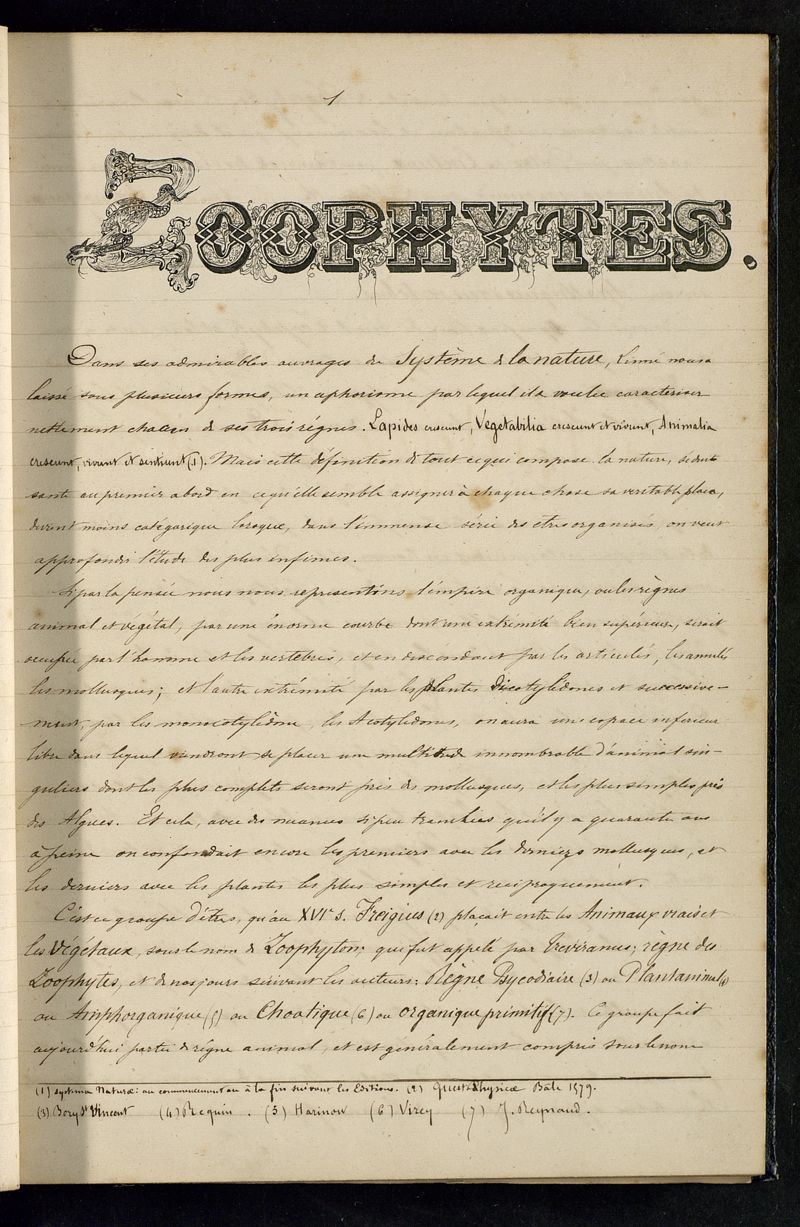 1
ZOOPHYTES.
Dans ses admirables ouvrages du Système de la nature, Linné nous a
laissé sous plusieurs formes, un aphorisme par lequel il a voulu caractériser
nettement chacun de ses trois règnes. Lapides crescunt, Vegetabilia crescunt et vivunt, Animalia
crescunt, vivunt et sentiunt (1). Mais cette définition de tout ce qui compose la nature, sedui-
sante au premier abord en ce qu'elle semble assigner à chaque chose sa veritable place,
devient moins catégorique lorsque, dans l'immense série des etres organisés, on veut
approfondir l'étude des plus infimes.
Si par la pensée nous nous representons l'empire organique, ou les règnes
animal et végétal, par une énorme courbe dont une extremité bien superieure, serait
occupée par l'homme et les vertebrés, et en descendant par les articulés, les annelés
les mollusques; et l'autre extrémité par les plantes Dicotylédones et successive-
ment, par les monocotylédone, les Acotylédones, on aura un espace inferieur
libre dans lequel viendront se placer une multitude innombrable d'animal sin-
guliers dont les plus complets seront près des mollusques, et les plus simples près
des Algues. Et cela, avec des nuances si peu tranchées qu'il y a quarante ans
à peine on confondait encore les premiers avec les derniers mollusques, et
les derniers avec les plantes les plus simples et reciproquement.
C'est ce groupe d'êtres, qu'au XVIe s. Freigius (2) plaçait entre les Animaux vrais et
les Vegetaux, sous le nom de Zoophyton; qui fut appelé par Treviranus; règne des
Zoophytes, et de nos jours suivant les auteurs: Règne Psycodiaire (3) ou Plantanimal (4)
ou Amphorganique (5) ou Chaotique (6) ou organique primitif (7). Ce groupe fait
aujourd'hui partie du règne animal, et est généralement compris sous le nom
(1) Systema Naturæ: au commencement ou à la fin suivant les Editions. (2) Quest. Physicæ Bâle 1579.
(3) Bory St Vincent (4) Requin. (5) Harinow (6) Virey (7) J. Reynaud.